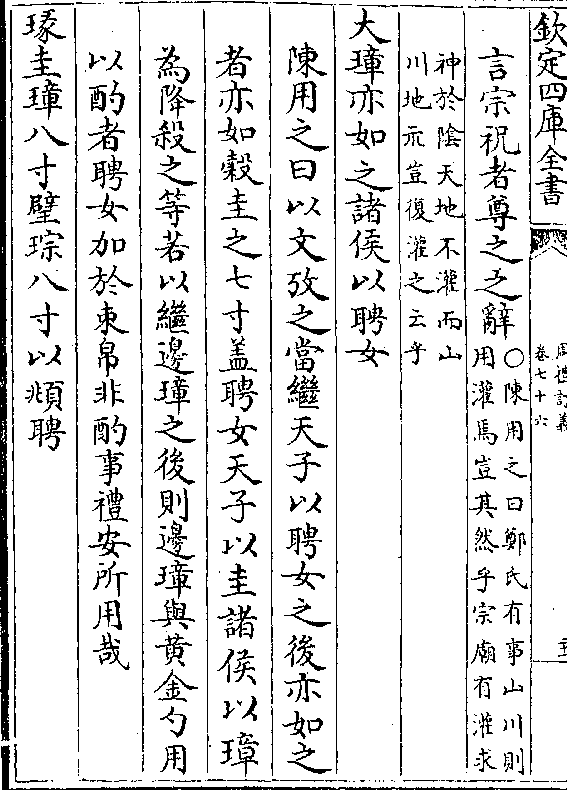 欽定四庫全書
周禮訂義
卷七十六
言宗祝者尊之之辭○陳用之曰鄭氏有事山川則
用灌焉豈其然乎宗廟有灌求
神於陰天地不灌而山
川地示豈復灌之云乎
大璋亦如之諸侯以聘女
陳用之曰以文攷之當繼天子以聘女之後亦如之
者亦如穀圭之七寸盖聘女天子以圭諸侯以璋
為降殺之等若以繼邊璋之後則邊璋與黄金勺用
以酌者聘女加於束帛非酌事禮安所用哉
瑑圭璋八寸璧琮八寸以頫聘